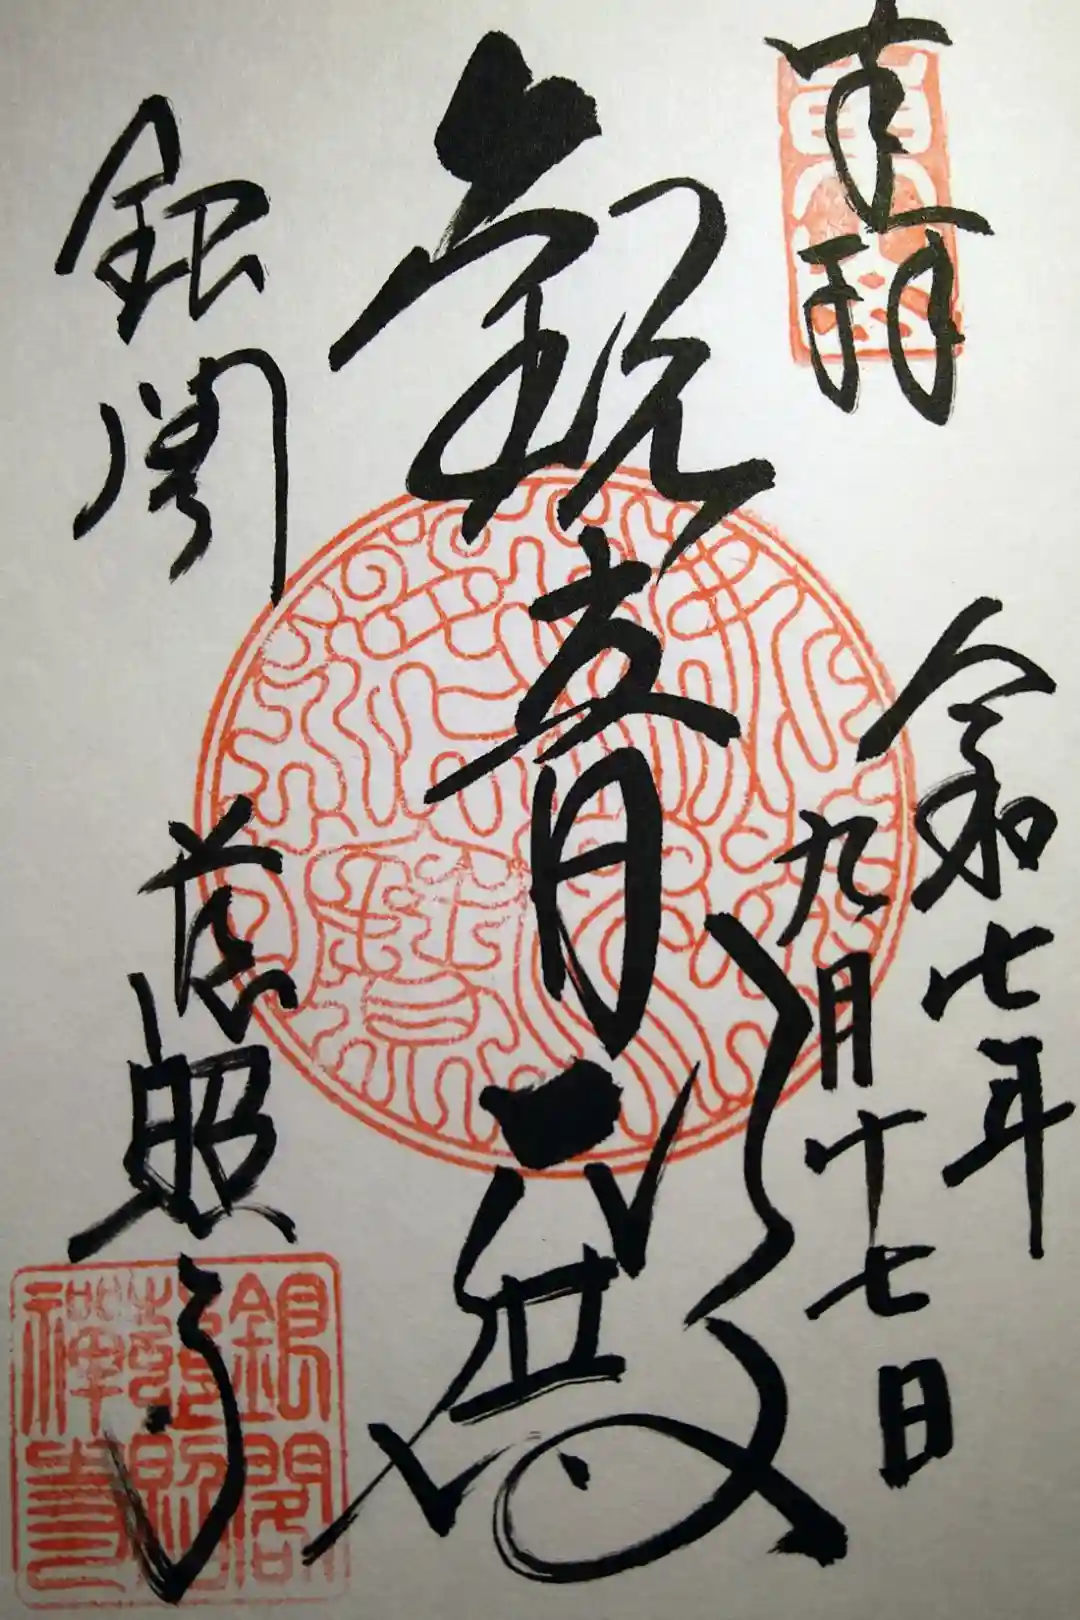 奉拝
令和七年
九月十七日
観音殿
銀閣
慈照寺
銀閣
慈照
禅寺